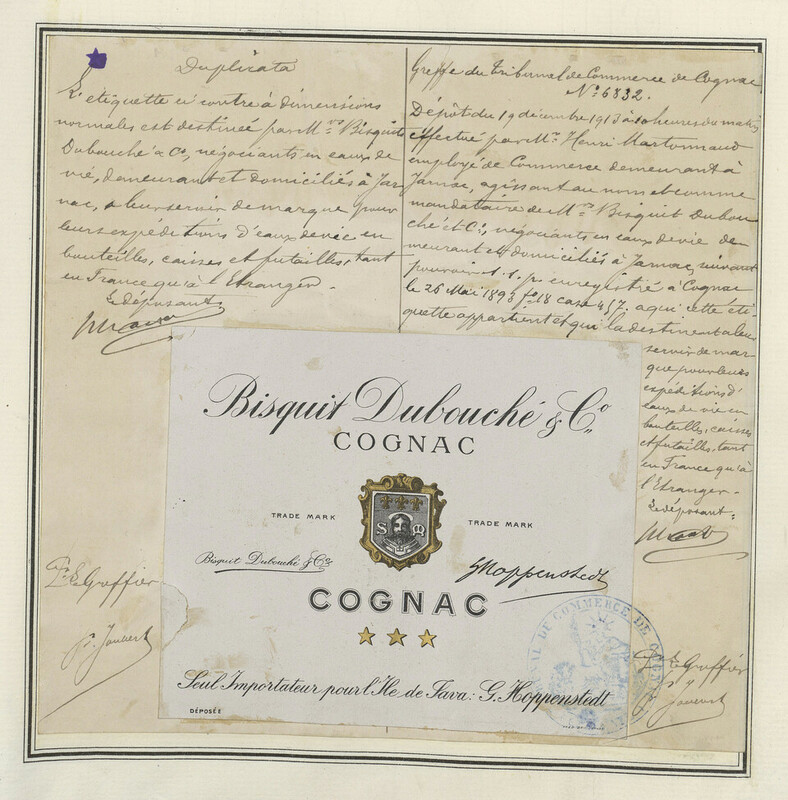 Duplicata
L'étiquette ci contre à dimensions
normales est destinée par Mrs Bisquit
Dubouché & Co, négociants en eaux de
vie, demeurant et domiciliés à Jar
nac, à leur servir de marque pour
leurs expéditions d'eaux de vie en
bouteilles, caisses et futailles, tant
en France qu'à l'Etranger.
Le déposant
Le Greffier
Greffe du Tribunal de Commerce de Cognac
No 6832.
Dépôt du 19 décembre 1913 à 10 heures du matin
effectué par Mr Henri Martonnaud
employé de Commerce demeurant à
Jarnac, agissant au nom et comme
mandataire de Mrs Bisquit Dubou
ché et Co, négociants en eaux de vie de
meurant et domiciliés à Jarnac, suivant
pouvoir s. s. p. enregistré à Cognac
le 26 Mai 1893 fo 18 case 457. a qui cette éti
quette appartient et qui la destinent à leur
servir de mar
que pour leurs
expéditions d'
eaux de vie en
bouteilles, caisses
et futailles, tant
en France qu'à
l'Etranger.
Le déposant:
Le Greffier
Bisquit Dubouché & Co
COGNAC
TRADE MARK
S M
TRADE MARK
Bisquit Dubouché & Co
G Hoppenstedt
COGNAC
Seul Importateur pour l'Ile de Java: G. Hoppenstedt
DÉPOSÉE
DU COMMERCE DE